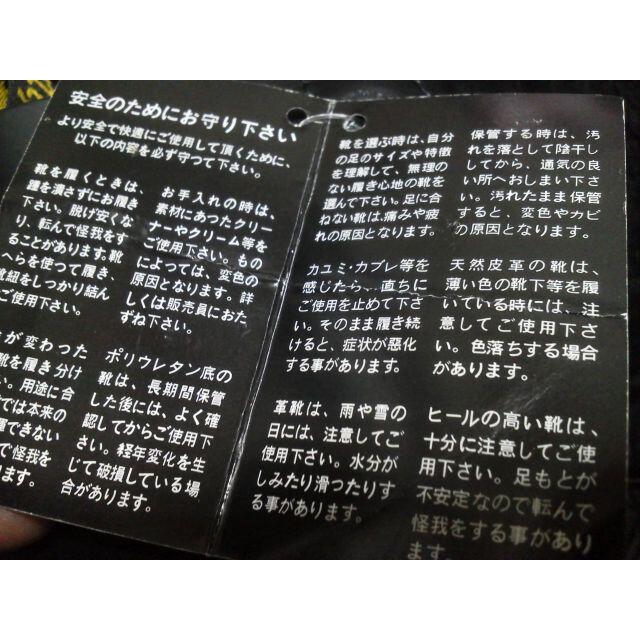 安全のためにお守り下さい
より安全で快適にご使用して頂くために、
以下の内容を必ず守って下さい。
靴を履くときは、
踵を潰さずにお履き
下さい。脱げ安くな
り、転んで怪我をす
ることがあります。靴
べらを使って履き、
靴紐をしっかり結ん
でご使用下さい。
お手入れの時は、
素材にあったクリー
ナーやクリーム等を
ご使用下さい。もの
によっては、変色の
原因となります。詳
しくは販売員におた
ずね下さい。
が変わった
靴を履き分け
い。用途に合
では本来の
できない
で怪我を
ります。
ポリウレタン底の
靴は、長期間保管
した後には、よく確
認してからご使用下
さい。経年変化を生
じて破損している場
合があります。
靴を選ぶ時は、自分
の足のサイズや特徴
を理解して、無理の
ない履き心地の靴を
選んで下さい。足に合
わない靴は、痛みや疲
れの原因となります。
保管する時は、汚
れを落として陰干し
してから、通気の良
い所へおしまい下さ
い。汚れたまま保管
すると、変色やカビ
の原因となります。
カユミ・カブレ等を
感じたら、直ちに
ご使用を止めて下さ
い。そのまま履き続
けると、症状が悪化
する事があります。
天然皮革の靴は、
薄い色の靴下等を履
いている時には、注
意してご使用下さ
い。色落ちする場合
があります。
革靴は、雨や雪の
日には、注意してご
使用下さい。水分が
しみたり滑つたりす
る事があります。
ヒールの高い靴は、
十分に注意してご使
用下さい。足もとが
不安定なので転んで
怪我をする事があり
ます。